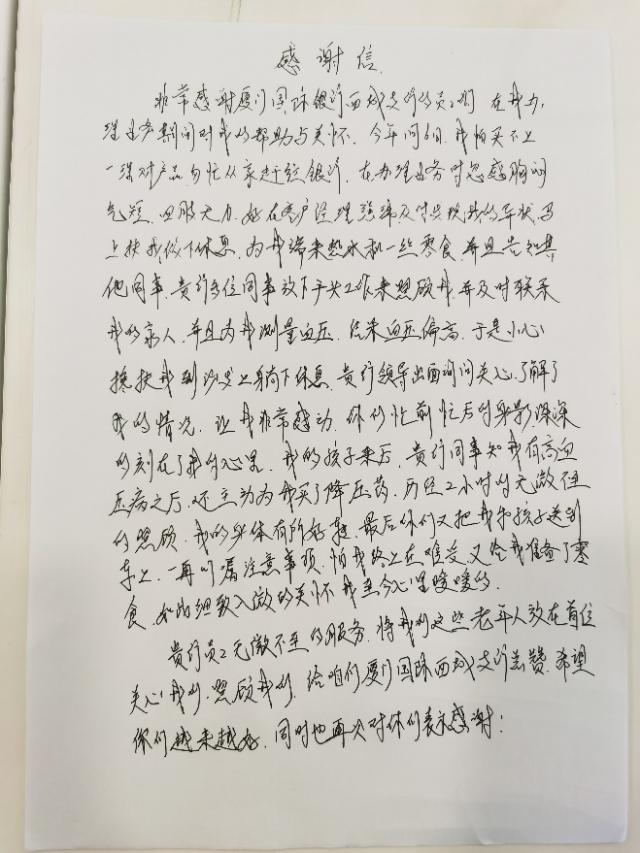 感谢信
非常感谢厦门国际银行西城支行的员工们 在我办
理业务期间对我的帮助与关怀。今年 我怕买不上
一 对产品匆忙从家赶 银行。在办理业务时忽感胸闷
气短、四肢无力。好在客户经理 及时 我的异状马
上扶我坐下休息、为我端来热水和一些零食。并且告知其
他同事。贵行多位同事放下手头工作来照顾我、并及时联系
我的家人、并且为我测量血压、结果血压偏高、于是小心
搀扶我到沙发上躺下休息、贵行领导出面询问关心、了解了
我的情况、让我非常感动、你们忙前忙后的身影深深
的刻在了我的心里、我的孩子来后、贵行同事知我有高血
压病之后、还主动为我买了降压药、历经2小时的无微不至
的照顾、我的身体有所好转、最后你们又把我和孩子送到
车上、一再叮嘱注意事项、怕我路上在难受、又给我准备了零
食、如此细致入微的关怀我至今心里暖暖的、
贵行员工无微不至的服务、将我们这些老年人放在首位
关心我们、照顾我们、给咱们厦门国际西城支行点赞、希望
你们越来越好、同时也再次对你们表示感谢！